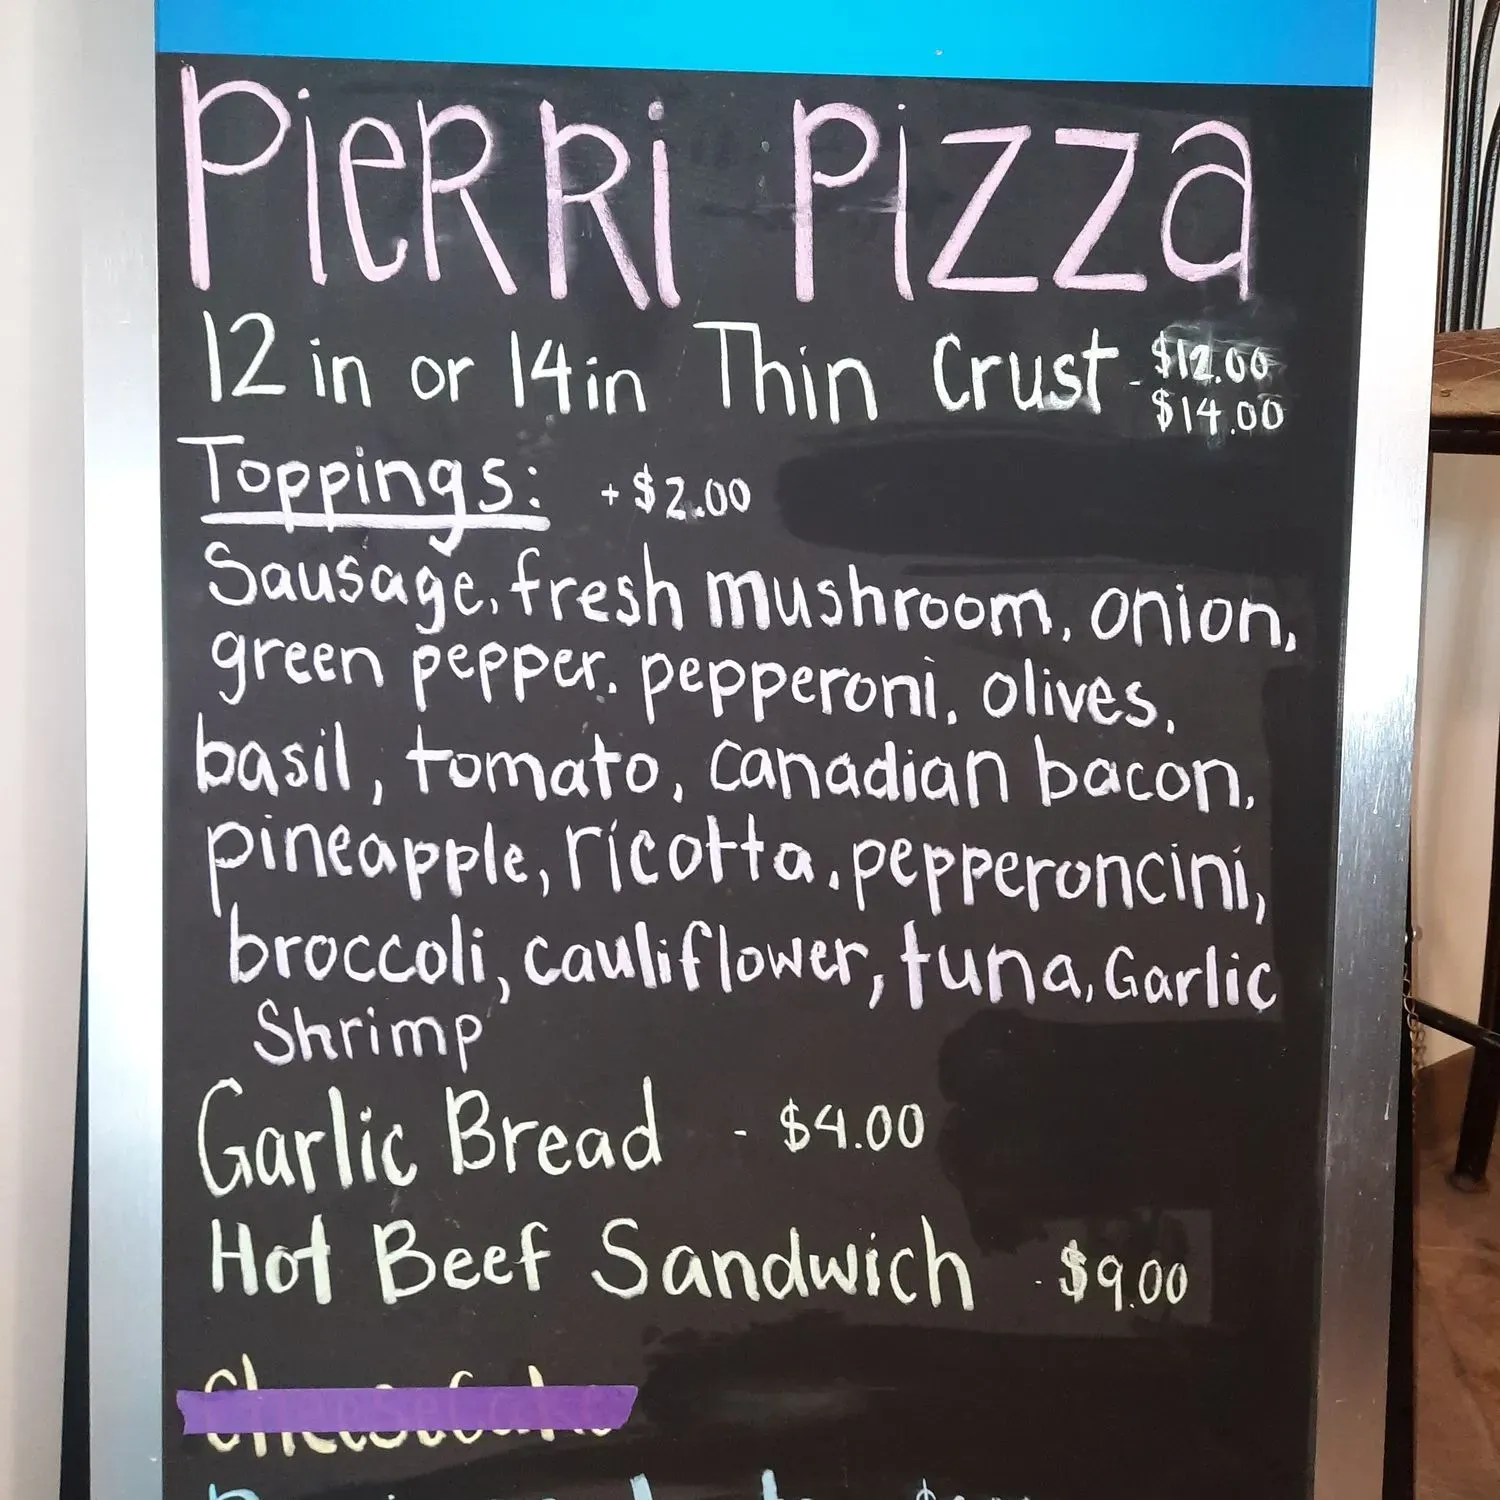 Pierri Pizza
12 in or 14 in Thin Crust - $12.00
$14.00
Toppings: + $2.00
Sausage, fresh mushroom, onion,
green pepper, pepperoni, olives,
basil, tomato, canadian bacon,
pineapple, ricotta, pepperoncini,
broccoli, cauliflower, tuna, Garlic
Shrimp
Garlic Bread - $4.00
Hot Beef Sandwich - $9.00
Cheesecake